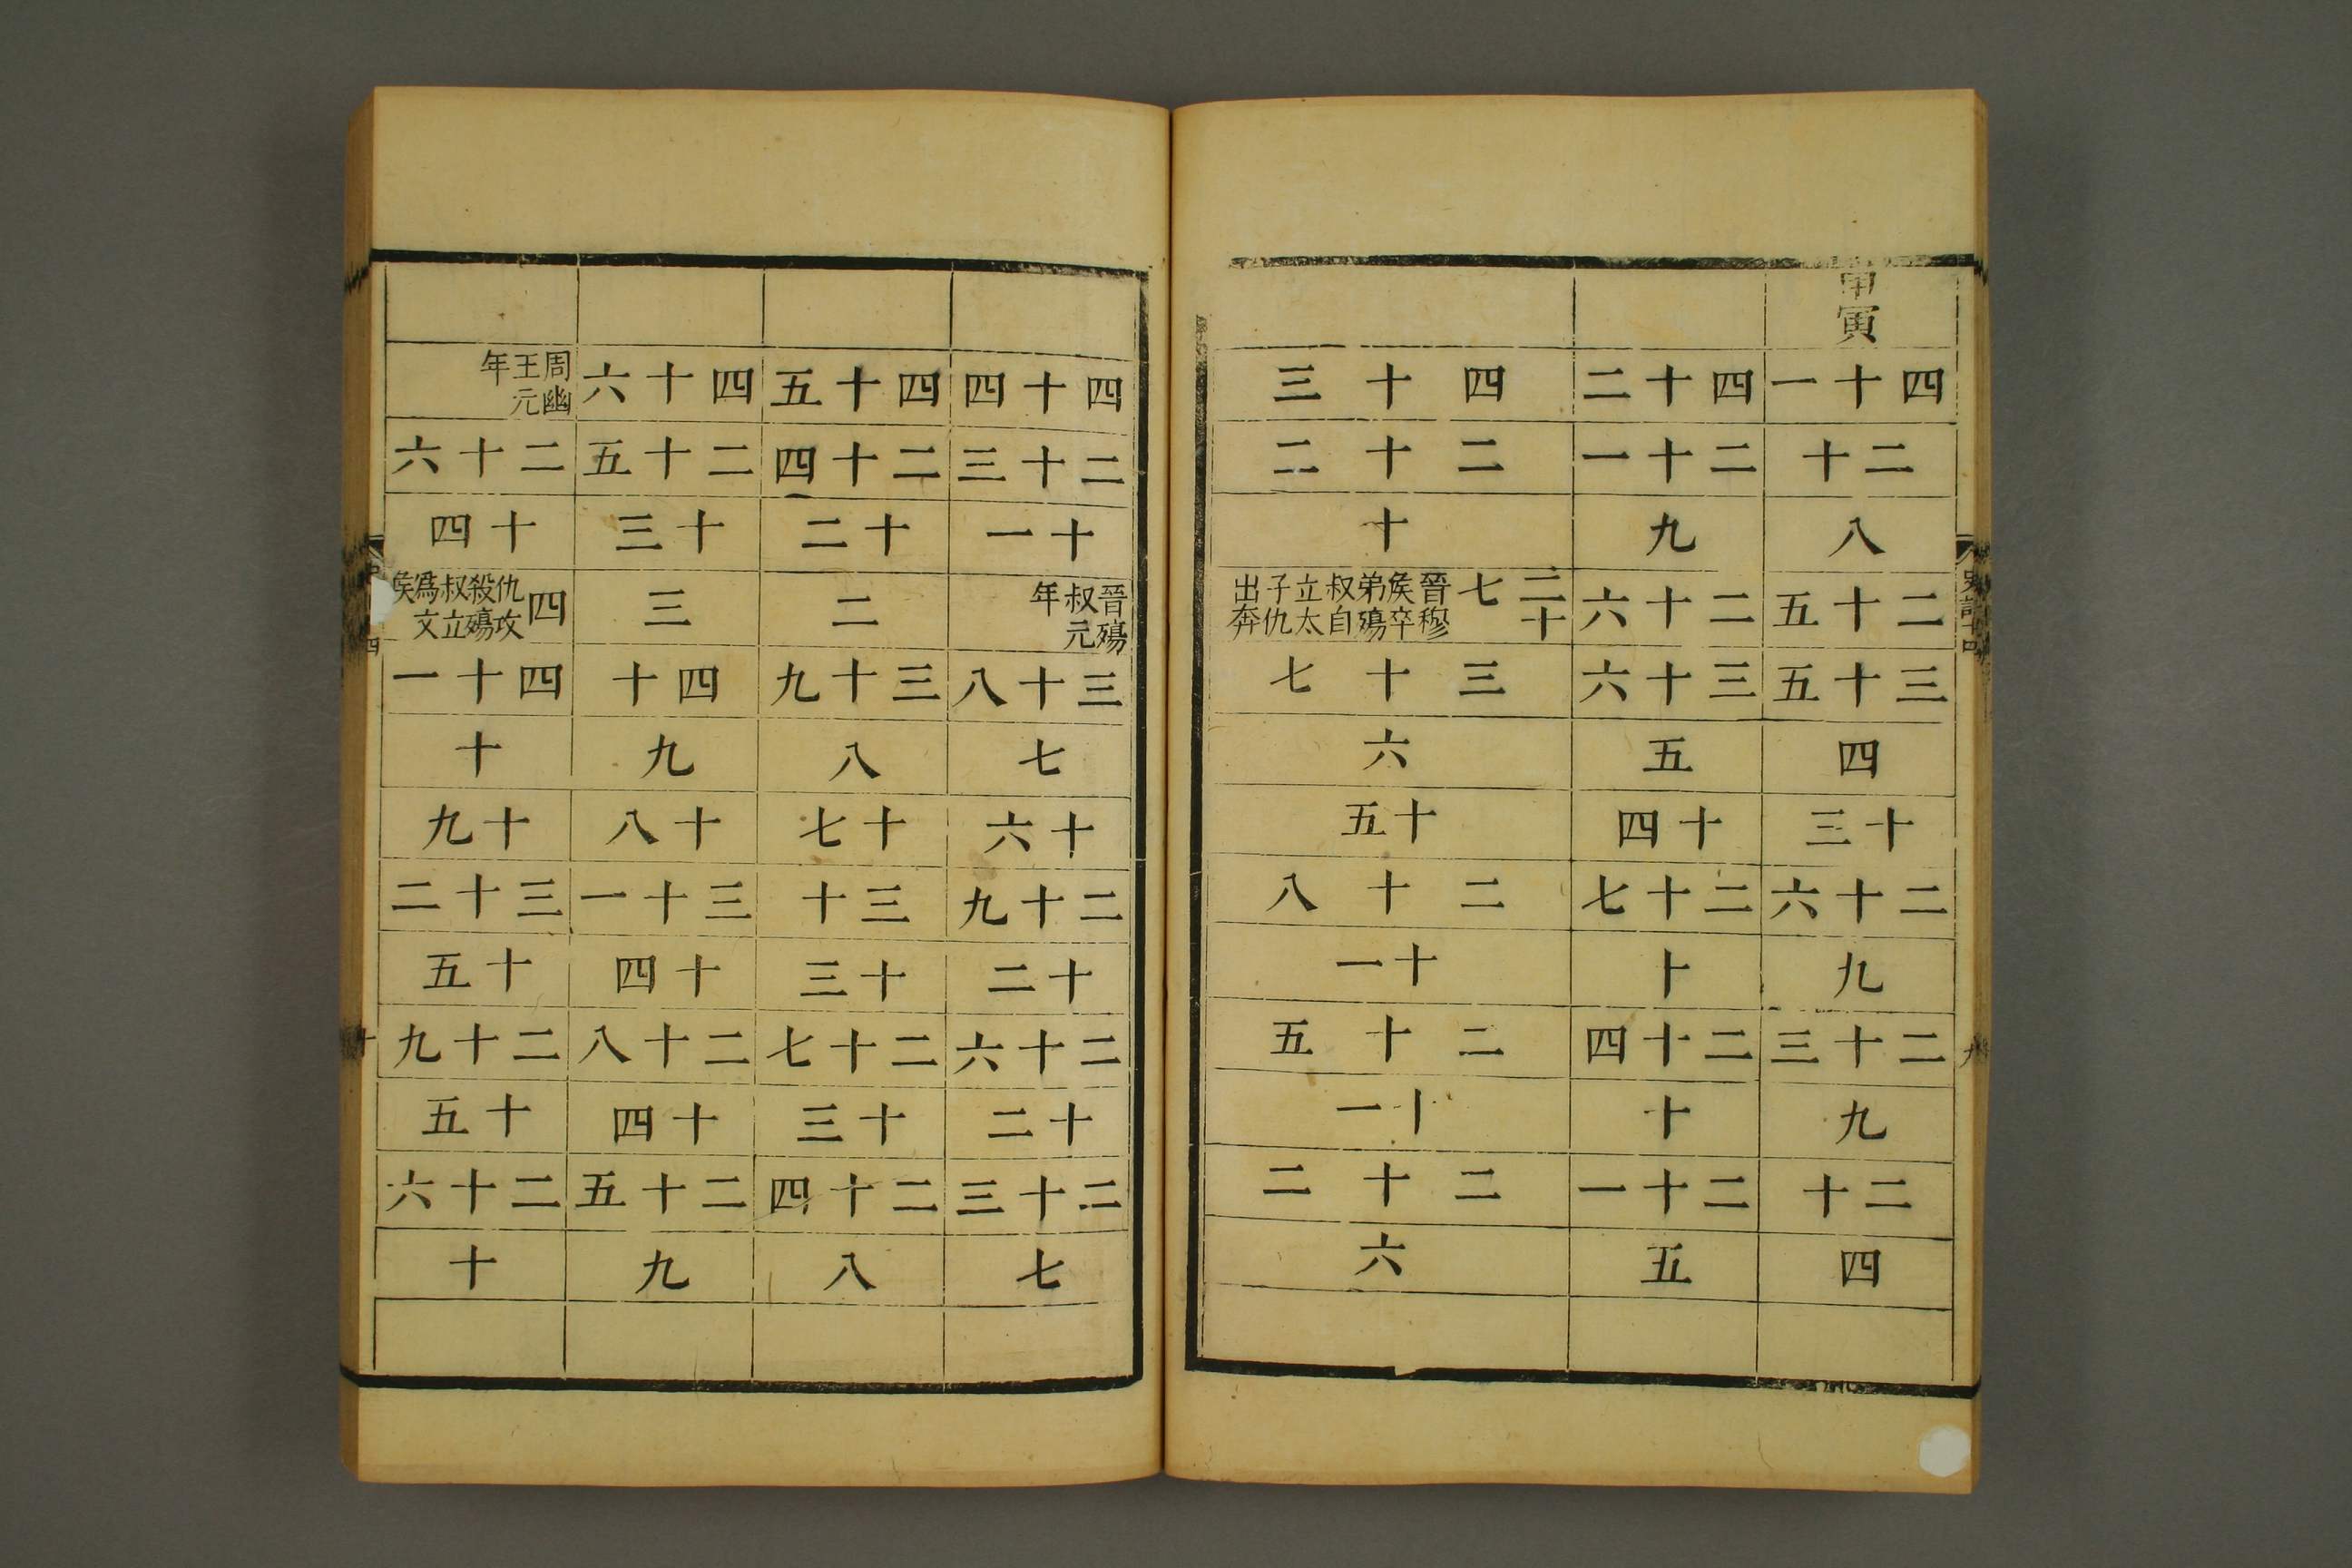 史記十四
九
甲寅
四十一
二十
八
二十五
三十五
四
十三
二十六
九
二十三
九
二十
四
四十二
二十一
九
二十六
三十六
五
十四
二十七
十
二十四
十
二十一
五
四十三
二十二
十
二十七
晉穆
侯卒
弟殤
叔自
立太
子仇
出奔
三十七
六
十五
二十八
十一
二十五
十一
二十二
六
四十四
二十三
十一
晉殤
叔元
年
三十八
七
十六
二十九
十二
二十六
十二
二十三
七
四十五
二十四
十二
二
三十九
八
十七
三十
十三
二十七
十三
二十四
八
四十六
二十五
十三
三
四十
九
十八
三十一
十四
二十八
十四
二十五
九
周幽
王元
年
二十六
十四
四
仇攻
殺殤
叔立
爲文
侯
四十一
十
十九
三十二
十五
二十九
十五
二十六
十
四
十